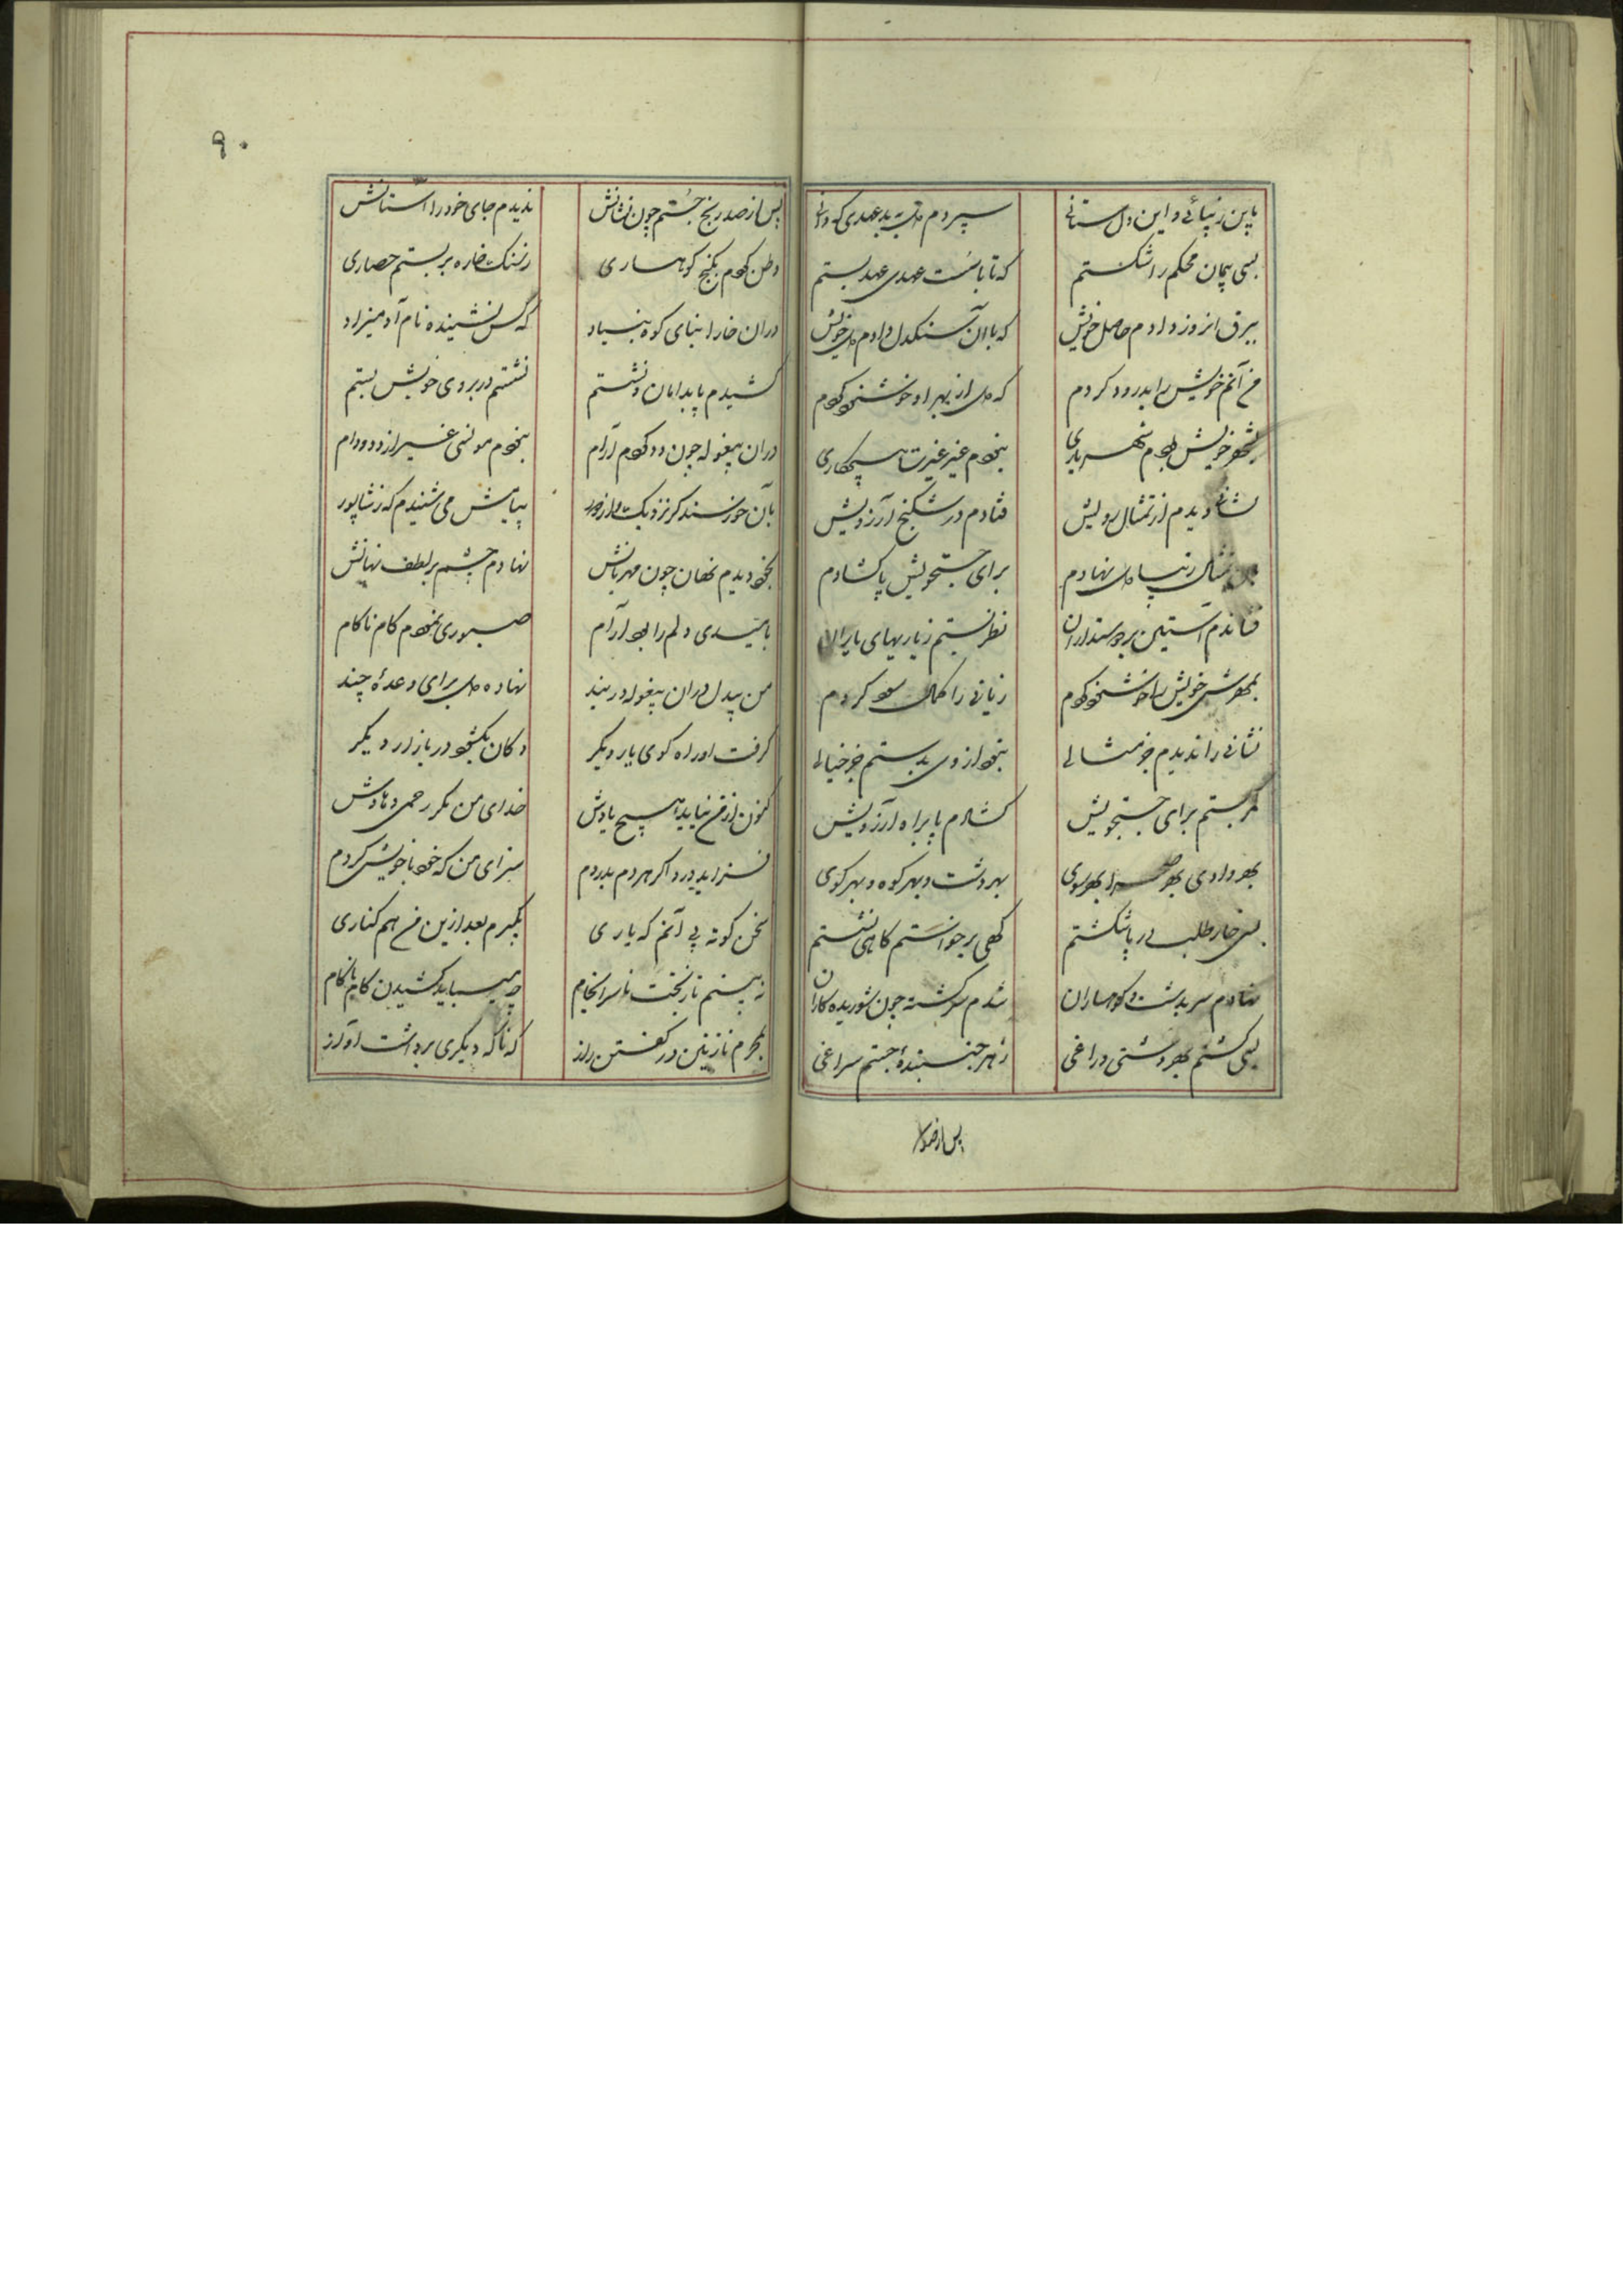 باین زیبائی و این دل ستانی سپردم دل به بدعهدی که دانی
بسی پیمان محکم را شکستم که تا با سست عهدی عهد بستم
ببرق افروز دادم حاصل خویش که با آن سنکدل دادم دل خویش
من آنم خویش را بدرود کردم که دل از بهر او خوشنود کردم
بشهر خویش بودم شهریاری نبودم غیر عشرت هیچ کاری
نشانی دیدم از تمثال رویش فتادم در شکنج آرزویش
تمثال زیبا دل نهادم برای جستجویش پا کشادم
فشاندم آستین بر دوستداران نظر بستم ز یاریهای یاران
بمهرش خویش را خوشنود کردم زیانی را کمان سود کردم
نشانی را ندیدم جز مثالی نبود از وی بدستم جز خیالی
کمر بستم برای جستجویش کشادم پا براه آرزویش
بهر وادی بهر صحرا بهر سوی بهر دشت و بهر کوه و بهر کوی
بسی خار طلب در پا شکستم کهی برخواستم کاهی نشستم
نهادم سر بدشت و کوهساران شدم سرکشته چون شوریده کاران
بسی کشتم بهر دشتی و راغی ز هر جنبندهٔ جستم سراغی
پس از صد
۹۰
پس از صد رنج جستم چون نشانش ندیدم جای خود در آستانش
وطن کردم بکنج کوهساری ز سنک خاره بربستم حصاری
در ان خارا بنای کوه بنیاد که کس نشنیده نام آدمیزاد
کشیدم پا بدامان و نشستم نشستم در بروی خویش بستم
در ان بیغوله چون دد کردم آرام نبودم مونسی غیر از دد و دام
بآن خورسند کر نزدیک و از دور پیامش می شنیدم که ز شاپور
بخود دیدم نهان چون مهربانش نهادم چشم بر لطف نهانش
بامیدی دلم را بود آرام صبوری نمودم کام ناکام
من بیدل در ان بیغوله در بند نهاده دل برای وعدهٔ چند
کرفت او راه کوی یار دیکر دکان بکشود در بازار دیکر
کنون از من نیاید هیچ یادش خدای من مکر رحمی دهادش
فزاید درد اکر هر دم بدردم سزای من که خود با خویش کردم
سخن کوته پی آنم که یاری بکیرم بعد ازین من هم کناری
به بینم تا ز بخت نا سرانجام چه میباید کشیدن کام ناکام
بمحرم نازنین در کفتن راز که ناکه دیکری برداشت آواز